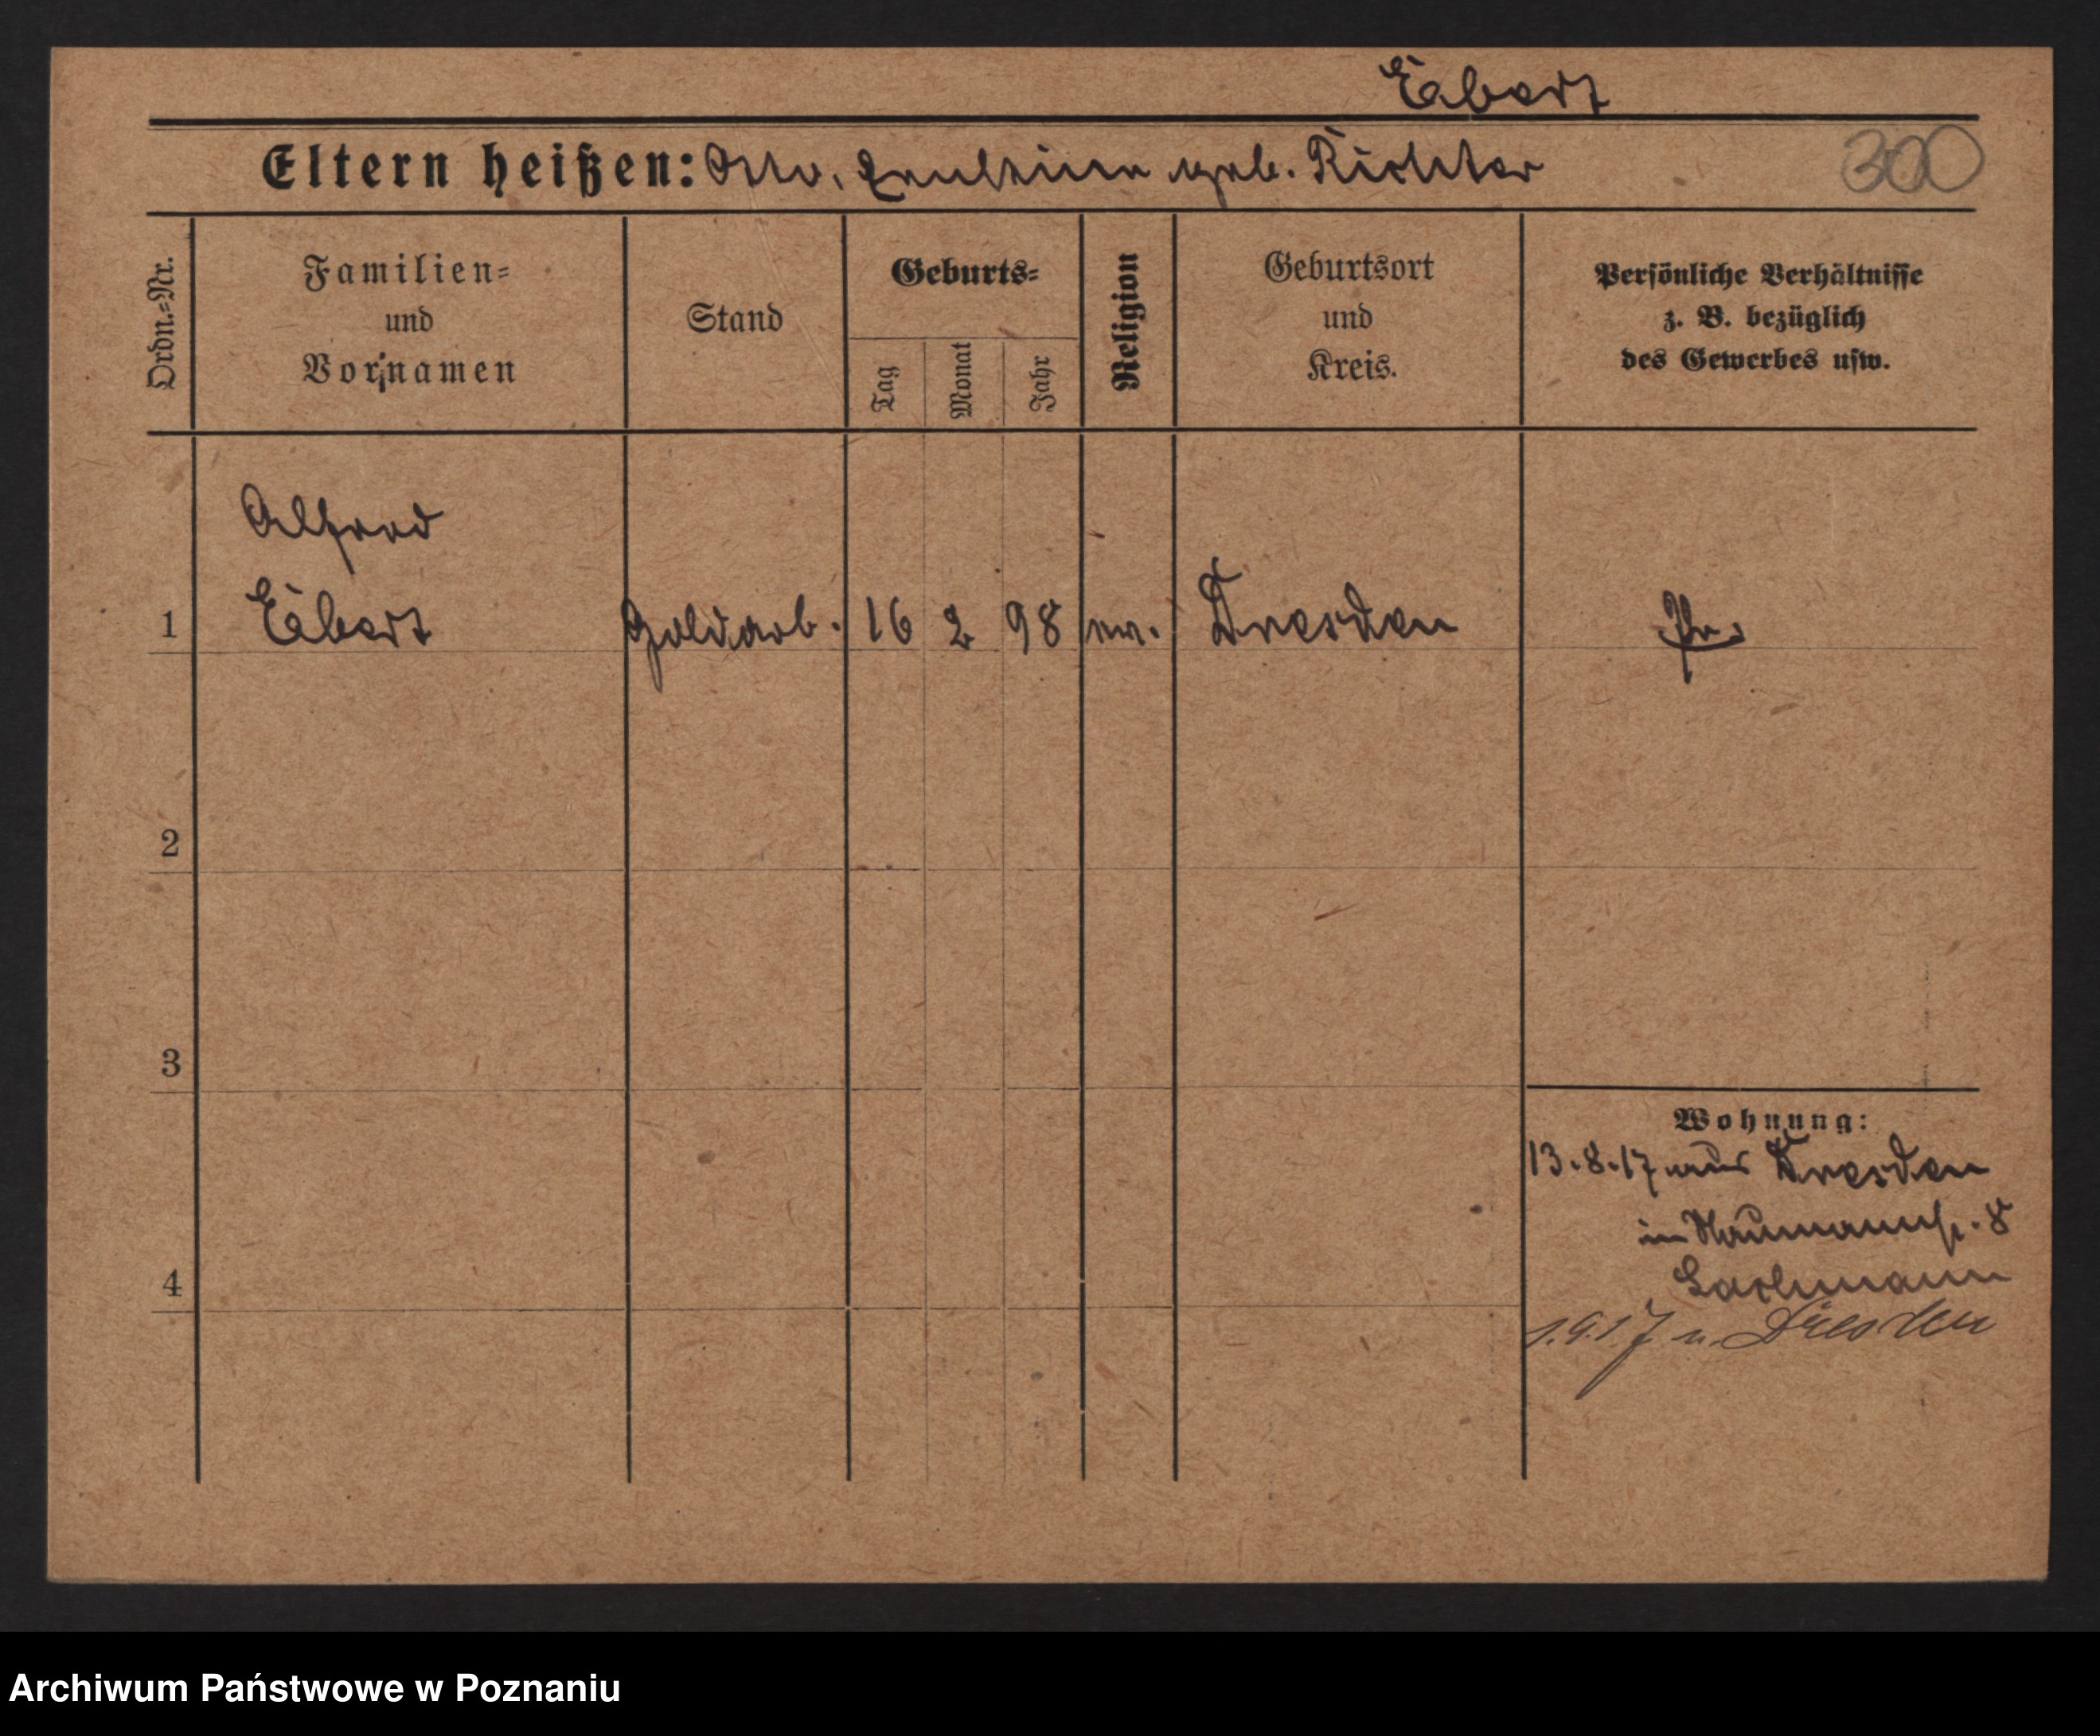 Ebert
Eltern heißen: Otto, Ernestine geb. Richter
300
Ordn.-Nr.
Familien-
und
Vornamen
Stand
Geburts-
Tag
Monat
Jahr
Religion
Geburtsort
und
Kreis.
Persönliche Verhältnisse
z. B. bezüglich
des Gewerbes usw.
Alfred
1 Ebert Goldarb. 16 2 98 ev. Dresden Pr.
2
3
4
Wohnung:
13.8.17 aus Dresden
in Naumannstr. 8
Lachmann
1.9.17 n. Dresden
Archiwum Państwowe w Poznaniu